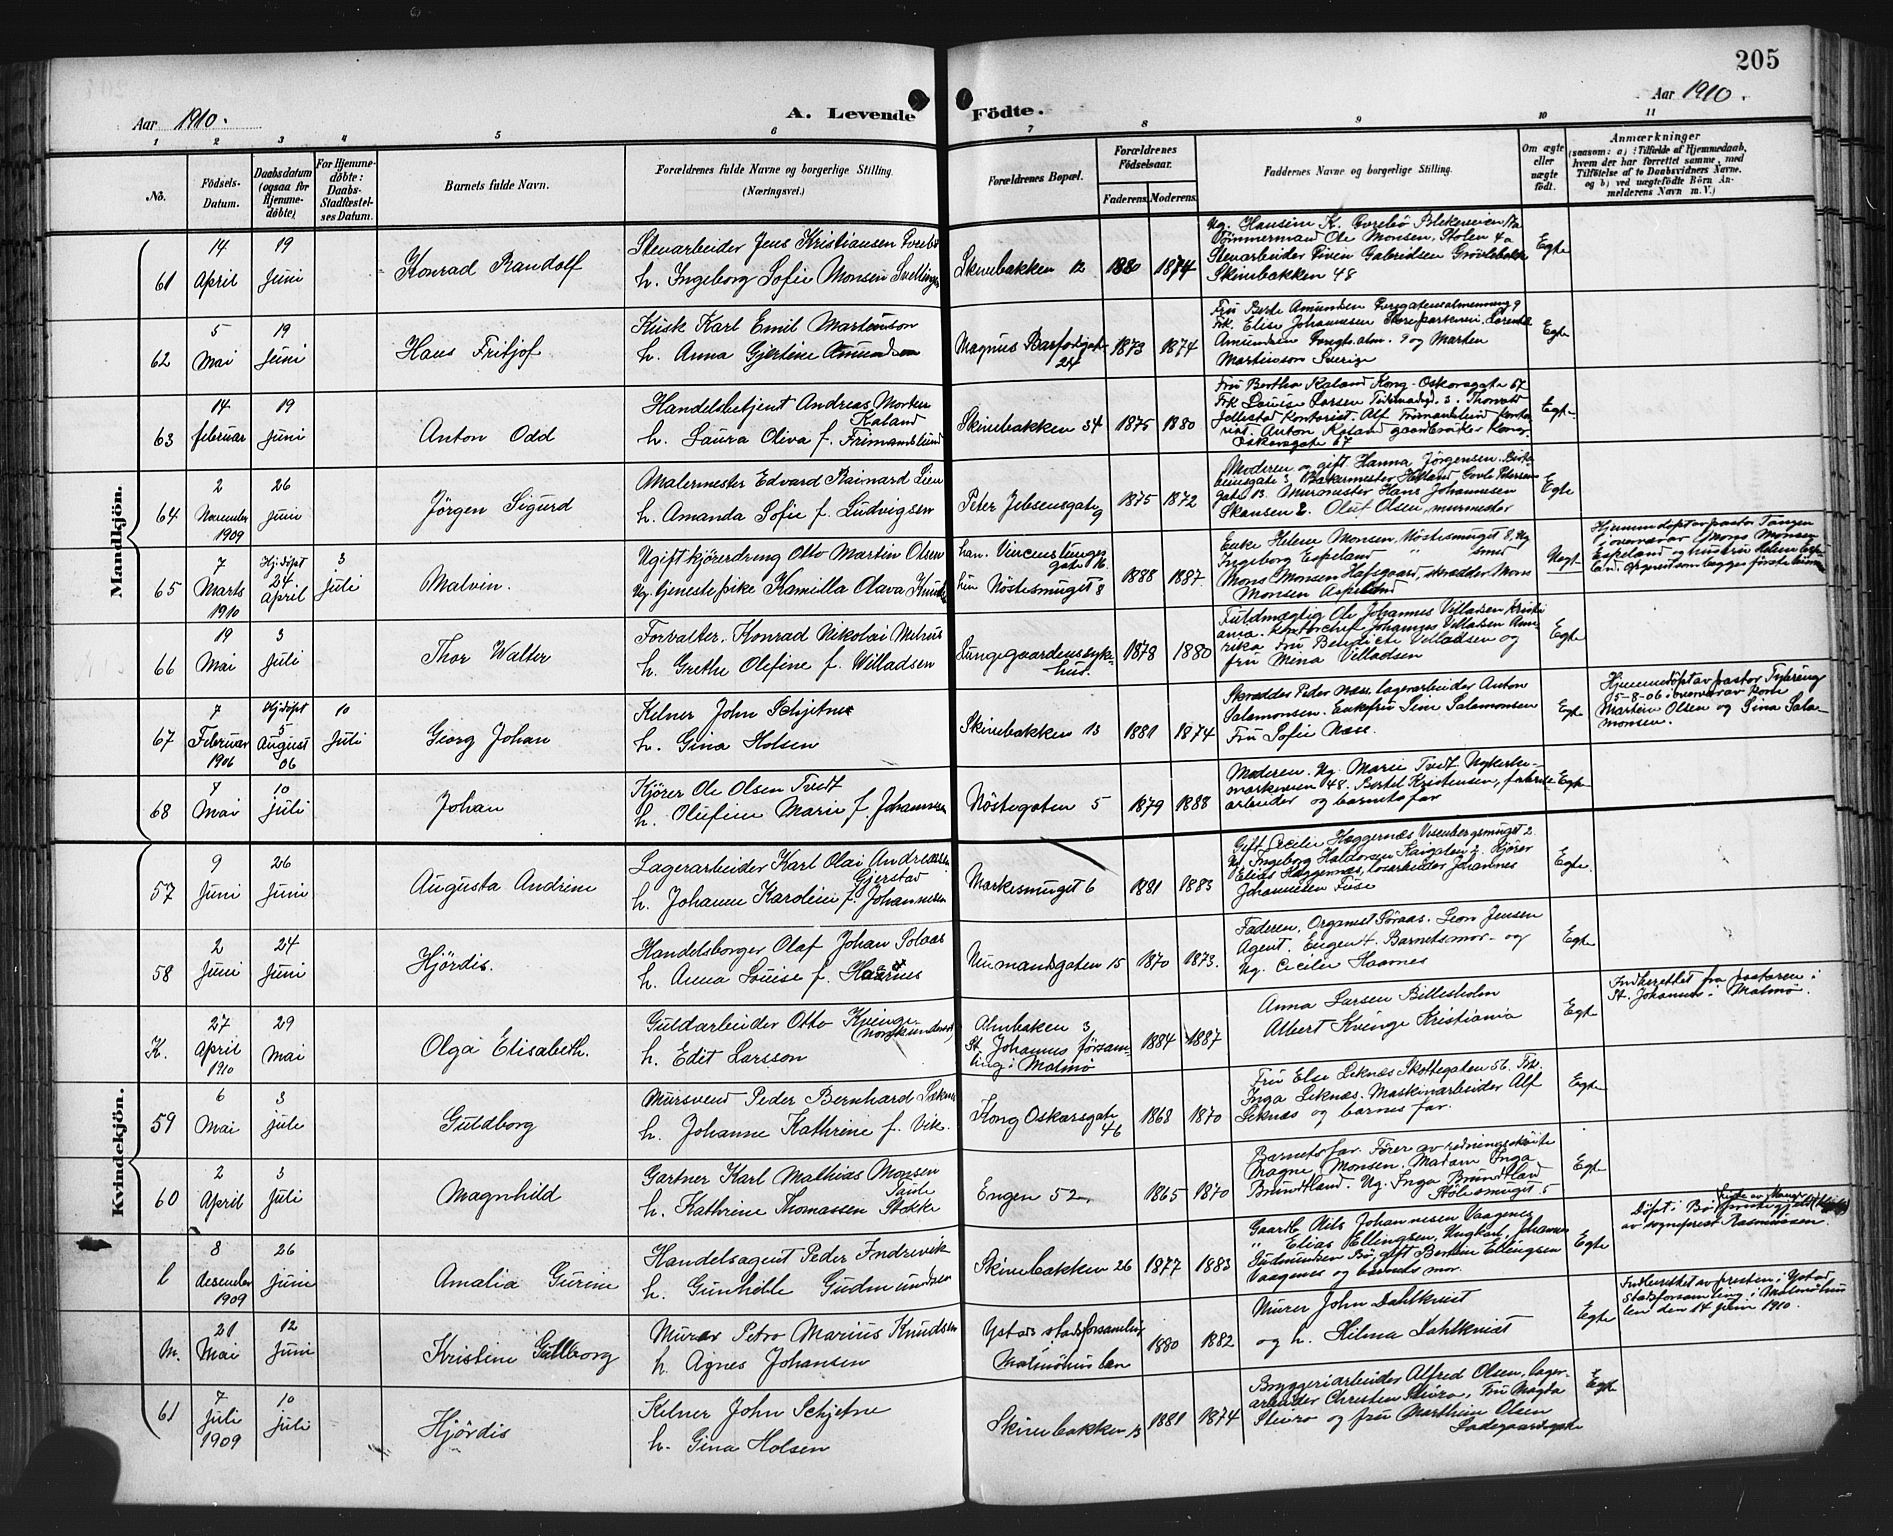 205
Aar 1910.
A. Levende Födte.
Aar 1910.
1 2 3 4 5 6 7 8 9 10 11
No.
Födsels-
Datum.
Daabsdatum
(ogsaa for
Hjemme-
döbte)
For Hjemme-
döbte:
Daabs-
Stadfæstel-
ses Datum.
Barnets fulde Navn.
Forældrenes fulde Navne og borgerlige Stilling.
(Næringsvei.)
Forældrenes Bopæl.
Forældrenes
Födselsaar.
Faderens. Moderens.
Faddernes Navne og borgerlige Stilling.
Om ægte
eller
uægte
født.
Anmærkninger
(saasom: a) i Tilfælde af Hjemmedaab,
hvem der har forrettet samme, med
Tilföielse af to Daabsvidners Navne,
og b) ved uægtefödte Börn An-
melderens Navn m. V.)
Mandkjön.
61
14
April
19
Juni
Konrad Randolf
Stenarbeider Jens Kristiansen
h. Ingeborg Sofie Monsen
Skivebakken 12
1880 1874
Ug. Hansine K.
Tømmermand Ole Monsen, Stølen 4a
Stenarbeider Gabrielsen
Skivebakken 48
Egte
62
5
Mai
19
Juni
Hans Fritjof
Kusk Karl Emil Martinson
h. Anna Gjertine Amundsen
Magnus Barfodsgate
24
1873 1874
Fru Berte Amundsen
Frk. Elise Johannesen
Amundsen 9 og Marten
Martinson Sverige
Egte
63
14
februar
19
Juni
Anton Odd
Handelsbetjent Andreas Morten
Kaland
h. Laura Oliva f. Frimanslund
Skivebakken 34
1875 1880
Fru Bertha Kaland Kong Oskarsgate 67
Frk Louise Larsen 3. Thorvald
Jellestad Kontorist. Alf Frimanslund kontorist. Anton Kaland gaardbruker Kong
Oskarsgate 67
Egte
64
2
November
1909
26
Juni
Jørgen Sigurd
Malermester Edvard Rainard Lien
h. Amanda Sofie f. Ludvigsen
Peter Jebsensgate 9
1875 1872
Moderen og gift Hanna Jørgensen.
gate 13. Murmester Hans Johannesen
Skansen 2. Oluf Olsen, murmester
Egte
65
7
Marts
1910
Hj.døpt
24
April
3
Juli
Malvin.
Ugift kjøredreng Otto Martin Olsen
Ug. tjenestepike Kamilla Olava
han. Vincenslunges
gate 16.
hun Nøstesmuget 8
1888 1887
Enke Helene Monsen, Nøstesmuget 8. Ug
Ingeborg Espeland
Mons Monsen skrædder Mons
Monsen
Uegt
Hjemmedøpt av pastor Tangen
i overvær av Mons Monsen
Espeland og hustru Helene
66
19
Mai
3
Juli
Thor Walter
Forvalter Konrad Nikolai
h. Grethe Olefine f. Willadsen
Lungegaardenssyke-
hus.
1878 1880
Fuldmægtig Ole Johannes Villadsen Kristi
ania. Kontorchef Johannes Villadsen Ame
rika Fru Bendicte Villadsen og
fru Mina Villadsen
Egte
67
7
Februar
1906
Hj.døpt
5
August
06
10
Juli
Georg Johan
Kelner John Schjetne
h. Gina Holsen
Skivebakken 13
1881 1874
Skrædder Peder Næss, lagerarbeider Anton
Salamonsen. Enkefru Sine Salamonsen
Fru Sofie Næss.
Egte
Hjemmedøpt av pastor
5-8-06 i overvær av
Martin Olsen og Sina Sala-
monsen.
68
7
Mai
10
Juli
Johan
Kjører Ole Olsen Tvedt
h. Olufine Marie f. Johannesen
Nøstegaten 5
1879 1888
Moderen. Ug. Marie Tvedt
48. Bertel Kristensen, fabrik-
arbeider og barnets far
Egte
Kvindekjön.
57
9
Juni
26
Juni
Augusta Andrine
Lagerarbeider Karl Olai Andreassen
Gjerstad
h. Johanne Karoline f. Johannesen
Markesmuget 6
1881 1883
Gift Cecilie Hæggernæs Vesenbergsmuget 2
Ug. Ingeborg Haldorsen Kaigaten 2. Kjører
Elias Hæggernæs, losarbeider Johannes
Johannesen Fuse
Egte.
58
2
Juni
24
Juni
Hjördis.
Handelsborger Olaf Johan Solaas
h. Anna Louise f.
Neumandsgaten 15
1870 1873.
Faderen, Organist Soraas. Leon Jensen
Agent. Engen 4. Barnets mor og
Ug. Cecilie
Egte
K.
27
April
1910
29
Mai
Olga Elisabeth.
Guldarbeider Otto Kvinge
(norsk undersaat)
h. Edit Larsson
Almbaken 3
St. Johannes försam-
ling i Malmø
1884 1887
Anna Larsen Billesholm
Albert Kvinge Kristiania
Egte
Indberettet fra pastoren i
St. Johannes i Malmø.
59
6
Mai
3
juli
Guldborg
Mursvend Peder Bernhard
h. Johanne Kathrine f. Vik.
Kong Oskarsgate
46
1868 1870
Fru Else Leknæs Skottegaten 56. Frk.
Inga Leknæs. Maskinarbeider Alf
Leknæs og barnets far.
Egte
60
2
April
3
Juli
Magnhild
Gartner Karl Mathias Monsen
h. Kathrine Thomassen Stokke
Engen 52
1865 1870
Barnets far. Fører av redningsskøite
Magne Monsen. Madam Inga
Brundtland. Ug. Inga Brundtland
Stølesmuget 5
Egte
l
8
desember
1909
26
Juni
Amalia Gurine
Handelsagent Peder Indrevik
h. Gunhilde Gudmundsen
Skivebakken 26
1877 1883
Gaardb. Nils Johannesen Vaagenes
" Elias Ellingsen, Ungkarl Johannes
Gudmundsen Bø, gift Ellingsen
Vaagenes og barnets mor.
Egte
Døpt i Bø
av sogneprest Rasmussen.
M.
21
Mai
12
Juni
Kristine Gullborg
Murer Petro Marius Knudsen
h. Agnes Johansen
Ystads stadsforsamling
Malmøhus læn
1880 1882
Murer John Dahlkvist
og h. Hilma Dahlkvist
Egte
Indberettet av presten i Ystad
Stadsforsamling i Malmøhus
len den 14 juni 1910.
61
7
Juli
1909
10
Juli
Hjördis
Kelner John Schjetne
h. Gina Holsen
Skivebakken 13
1881 1874
Bryggeriarbeider Alfred Olsen, lager-
arbeider Christen Sture, Fru Magda
Sture og fru Marthine Olsen
Ladegaardsgate
Egte